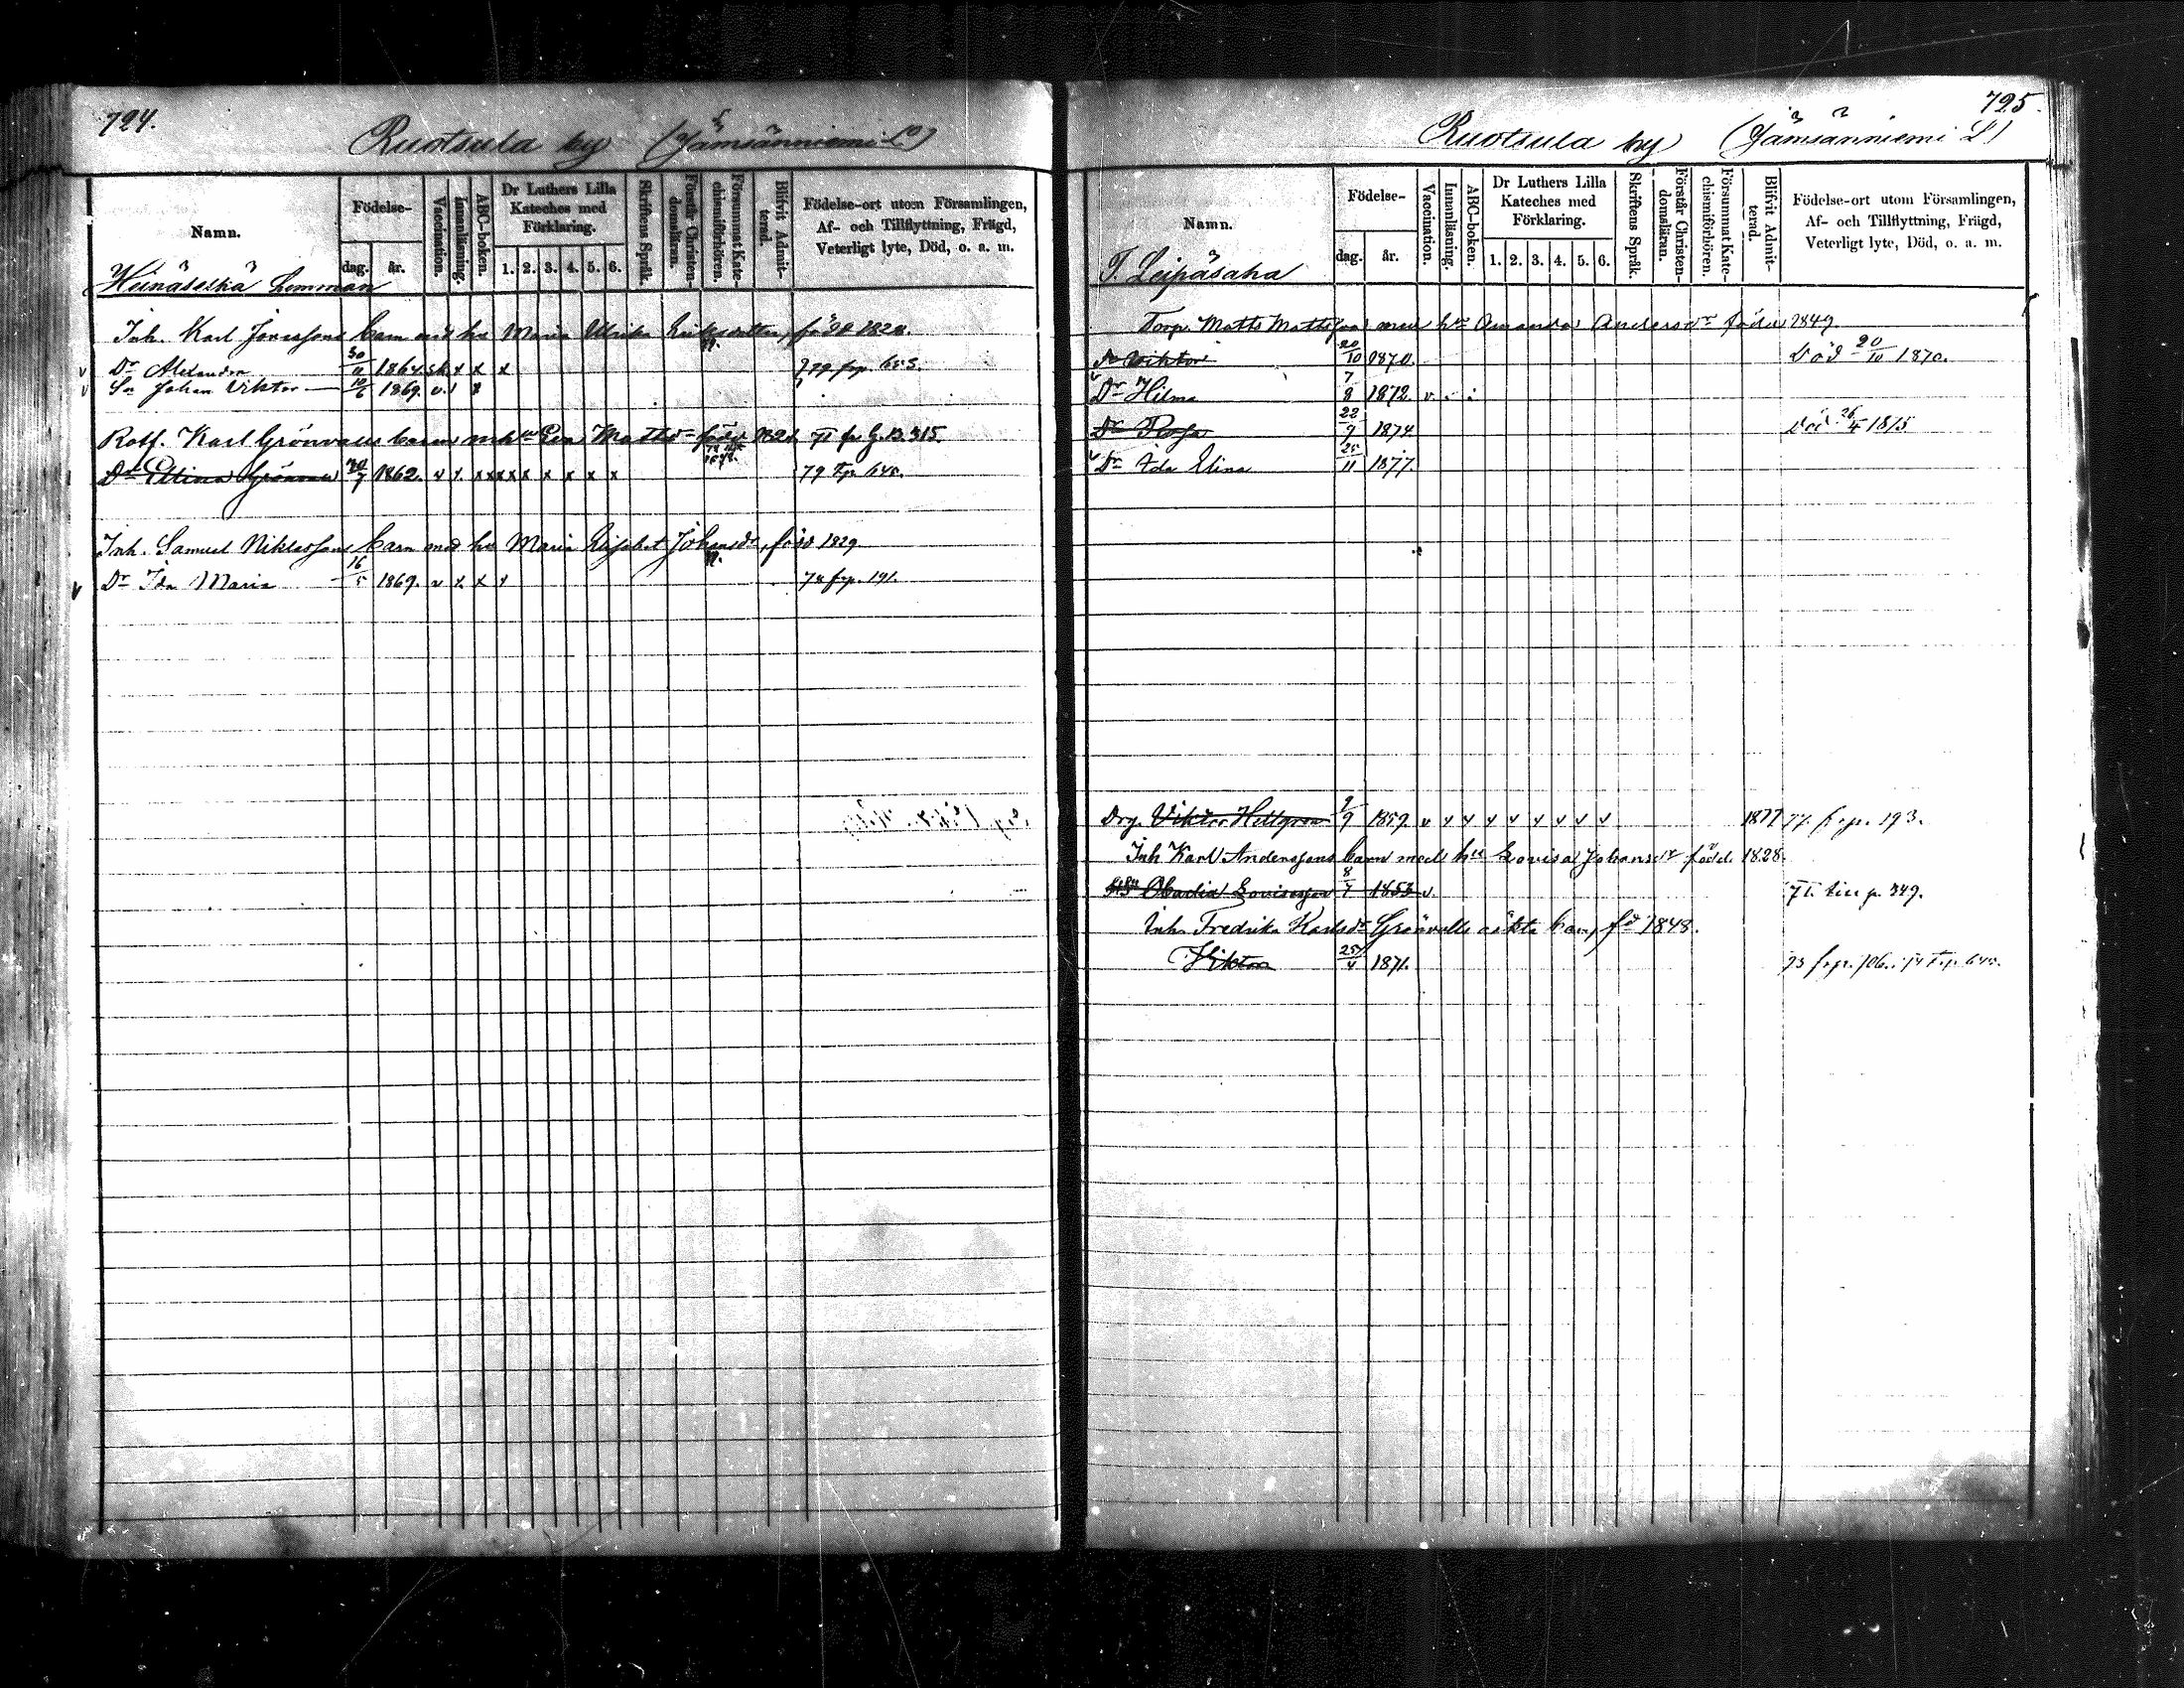 724.
Ruotsula by (Jämsänniemi L°)
Namn.
Födelse-
dag.
år.
Vaccination.
Innanläsning.
ABC-boken.
Dr Luthers Lilla Kateches med Förklaring.
1. 2. 3. 4. 5. 6.
Skriftens Språk.
Förstår Christendomsläran.
Försummat Katechismiförhören.
Blifvit Admitterad.
Födelse-ort utom Församlingen, Af- och Tillflyttning, Frägd, Veterligt lyte, Död, o. a. m.
Heinäselkä Lemman
Inh. Karl Jonessons barn med hu Maria Ulrika född 1820.
Dr Alexandra 30/11 1864 x x x
Sn Johan Viktor 10/6 1869. v.
Rotf. Karl Grönvalls barn m hu Eva Mattsdr född 71 fr G.B. 315.
Dr Elina Grönvall 30/7 1862. v x x x x x x x x x 79 T.p. 640.
Inh. Samuel Niklassons barn med hu Maria Elisabet Johansdr, född 1829.
Dr Ida Maria 16/5 1869. v x x x 78 frp. 191.
725.
Ruotsula by (Jämsänniemi L)
Namn.
Födelse-
dag.
år.
Vaccination.
Innanläsning.
ABC-boken.
Dr Luthers Lilla Kateches med Förklaring.
1. 2. 3. 4. 5. 6.
Skriftens Språk.
Förstår Christendomsläran.
Försummat Katechismiförhören.
Blifvit Admitterad.
Födelse-ort utom Församlingen, Af- och Tillflyttning, Frägd, Veterligt lyte, Död, o. a. m.
T. Leipäsaha
Torp. Matts Mattsson med hu Amanda Andersdr född 1849.
Sn Viktor 20/10 1870. Död 20/10 1870.
Dr Hilma 7/8 1872. v
Dr Rosa 22/9 1874 Död 26/4 1875
Dr Ida Elina 25/11 1877.
Drg. Viktor Hellgren 9/9 1859. v v v v v v v v v 1877 77. frp. 193.
Inh Karl Anderssons barn med hu Lovisa Johansdr född 1828.
8/7 1853 v. 71. till p. 349.
Inh. Fredrika Karlsdr Grönvalls oäkta barn, fd 1848.
Viktor 25/4 1871. 73 frp. 706. 74 T.p. 640.